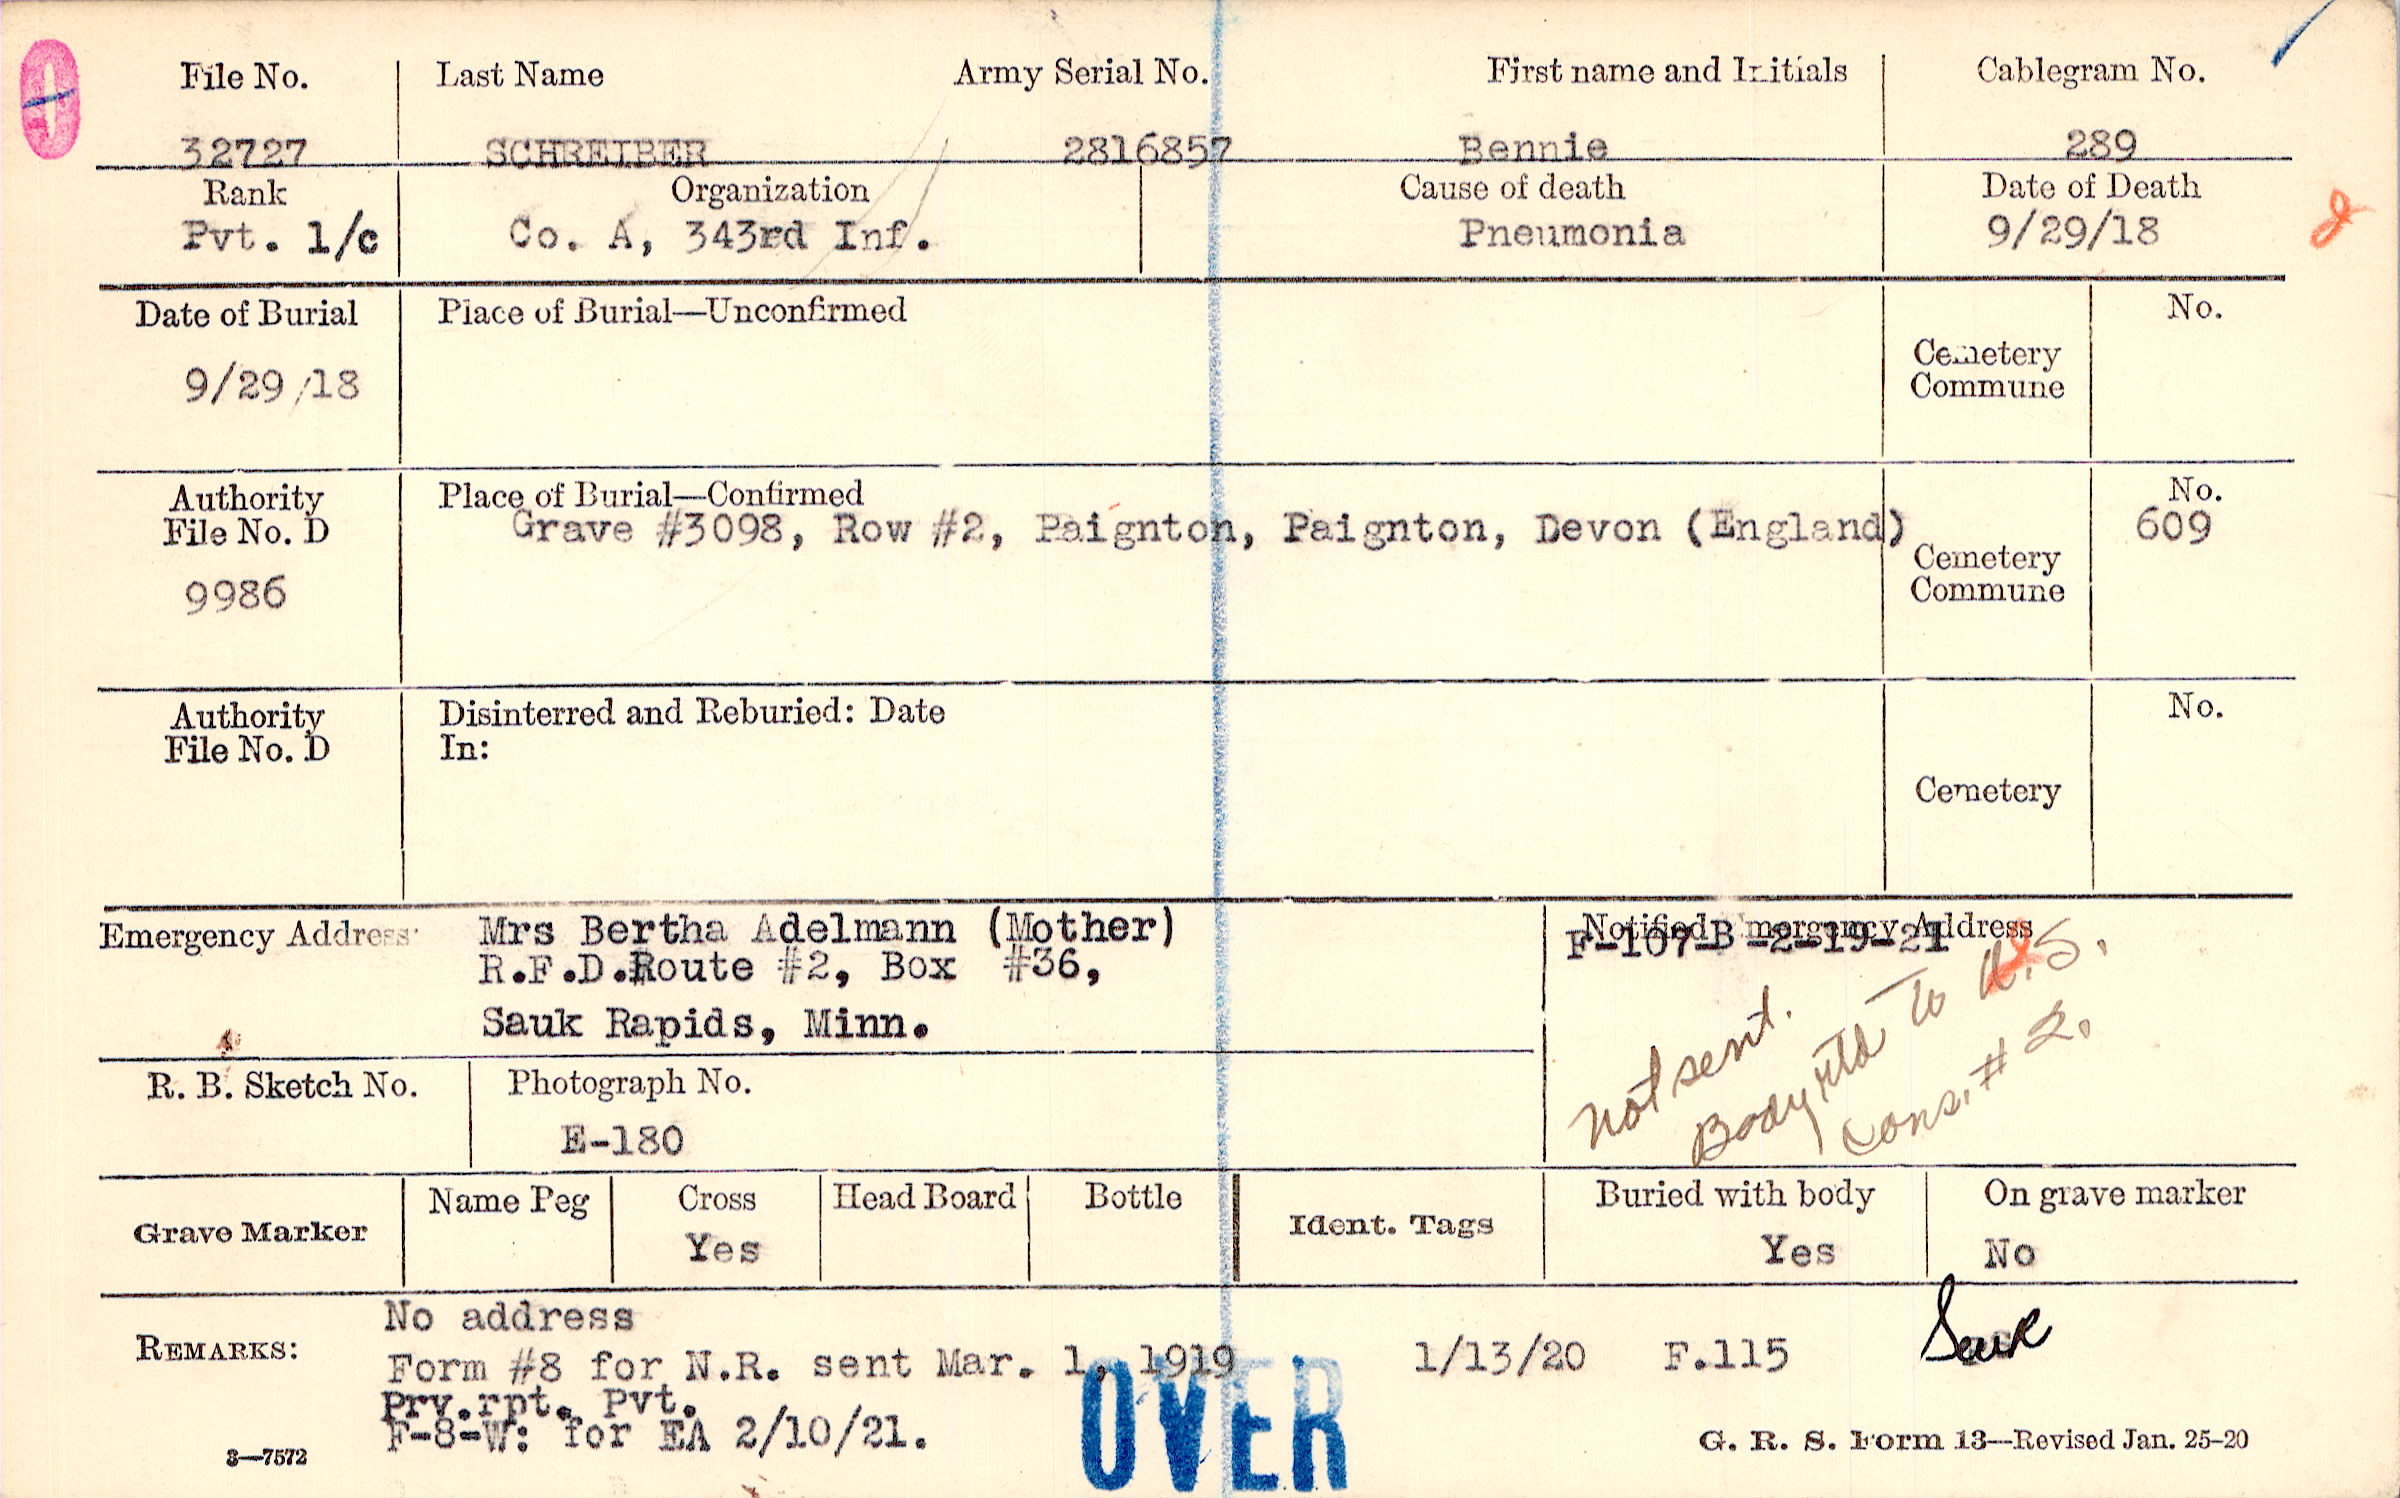 File No. Last Name Army Serial No. First name and Initials Cablegram No.
32727 SCHREIBER 2816857 Bennie 289
Rank Organization Cause of death Date of Death
Pvt. 1/c Co. A, 343rd Inf. Pneumonia 9/29/18
Date of Burial Place of Burial—Unconfirmed No.
9/29/18
Cemetery
Commune
Authority
File No. D
9986
Place of Burial—Confirmed
Grave #3098, Row #2, Paignton, Paignton, Devon (England)
Cemetery
Commune
No.
609
Authority
File No. D
Disinterred and Reburied: Date
In:
Cemetery
No.
Emergency Address
Mrs Bertha Adelmann (Mother)
R.F.D.Route #2, Box #36,
Sauk Rapids, Minn.
Notified Emergency Address
F-107-B -2-19-21
Not sent.
Body rtd to U.S.
Cons. # 2.
R. B. Sketch No. Photograph No.
E-180
Grave Marker
Name Peg Cross Head Board Bottle
Yes
Ident. Tags
Buried with body On grave marker
Yes No
REMARKS:
No address
Form #8 for N.R. sent Mar. 1, 1919 1/13/20 F.115
Prv.rpt. Pvt.
F-8-W: for EA 2/10/21.
OVER
3—7572
G. R. S. Form 13—Revised Jan. 25-20